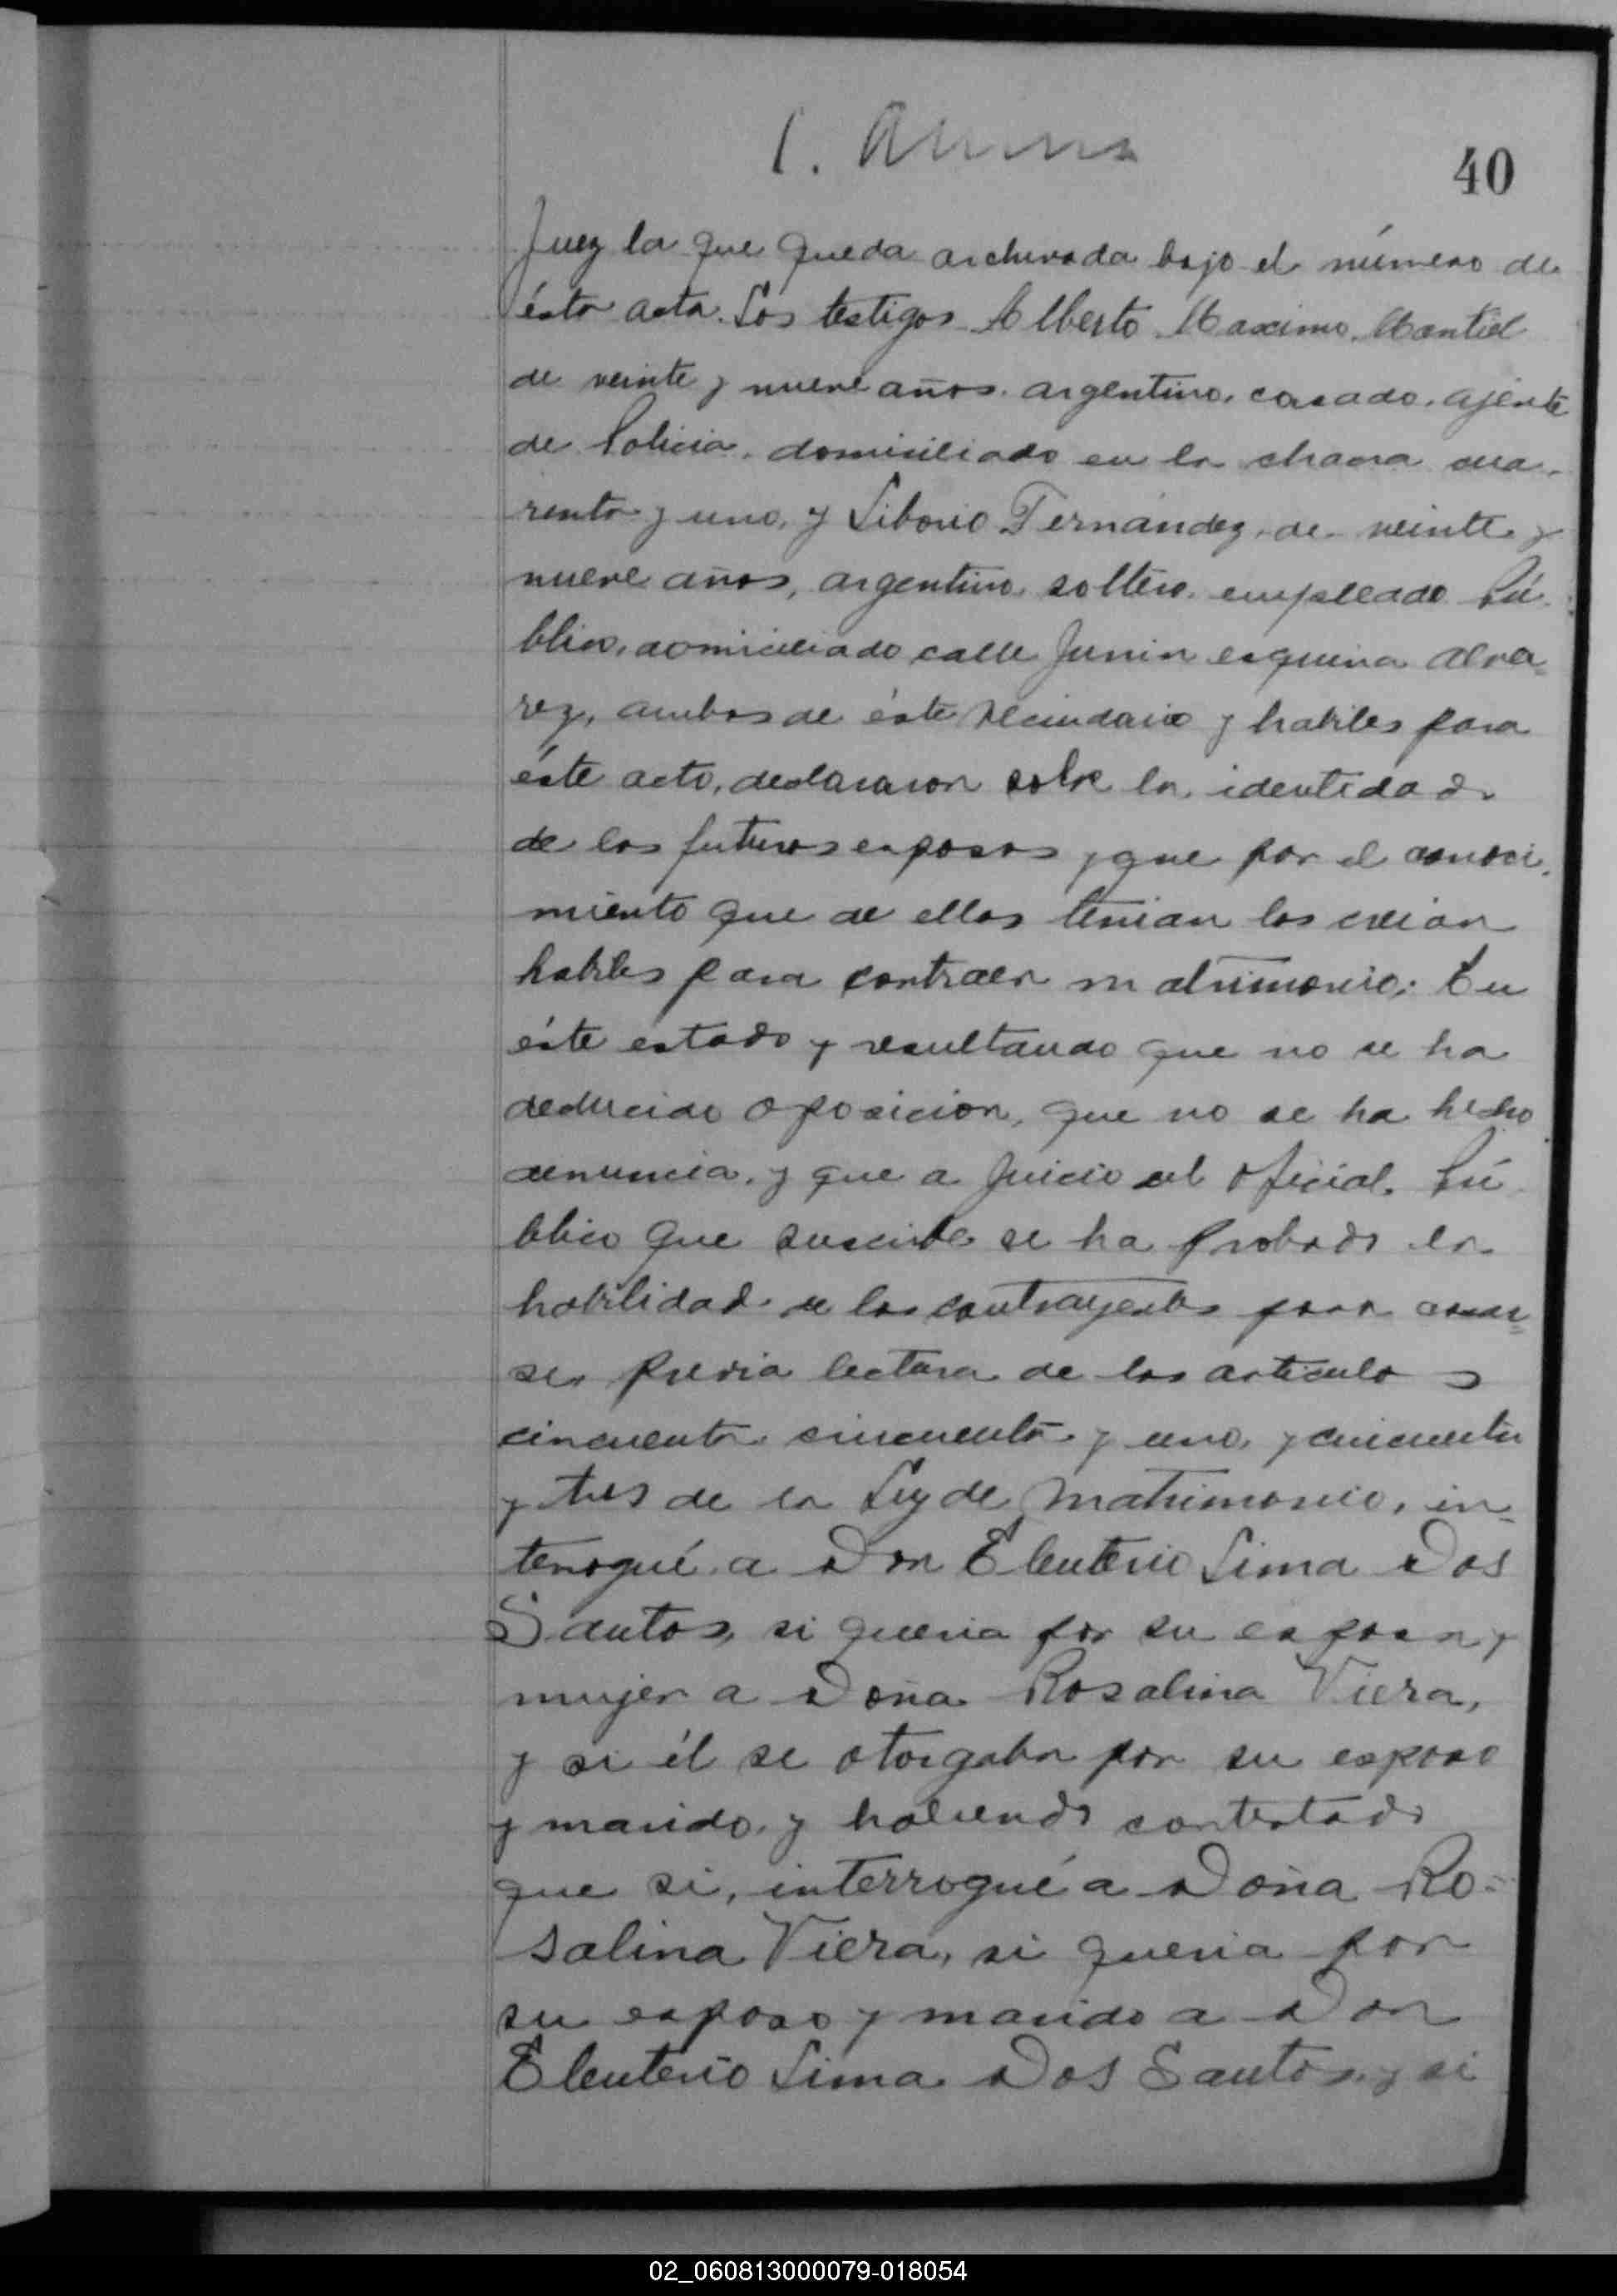 40
Juez la que queda archivada bajo el número de
ésta acta. Los testigos Alberto Maximo Montiel
de veinte y nueve años. argentino, casado. ajente
de Policia. domiciliado en la chacra cua-
renta y uno, y Liborio Fernández, de veinte y
nueve años, argentino, soltero. empleado Pú-
blico, domiciliado calle Junin esquina Alva=
rez, ambos de éste vecindario y habiles para
éste acto, declararon sobre la identidad
de los futuros esposos y que por el conoci-
miento que de ellos tenian los creian
habiles para contraer matrimonio: En
éste estado y resultando que no se ha
deducido oposicion, que no se ha hecho
denuncia, y que a Juicio del oficial Pú-
blico que suscribe se ha probado la
habilidad de los contrayentes para casar=
se, previa lectura de los articulos
cincuenta cincuenta y uno, y cincuenta
y tres de la Ley de Matrimonio, in-
terrogué a Don Eleuterio Lima Dos
Santos, si queria por su esposa y
mujer a Doña Rosalina Viera,
y si él se otorgaba por su esposo
y marido, y habiendo contestado
que si, interrogué a Doña Ro=
salina Viera, si queria por
su esposo y marido a Don
Eleuterio Lima Dos Santos, y si
02_060813000079-018054